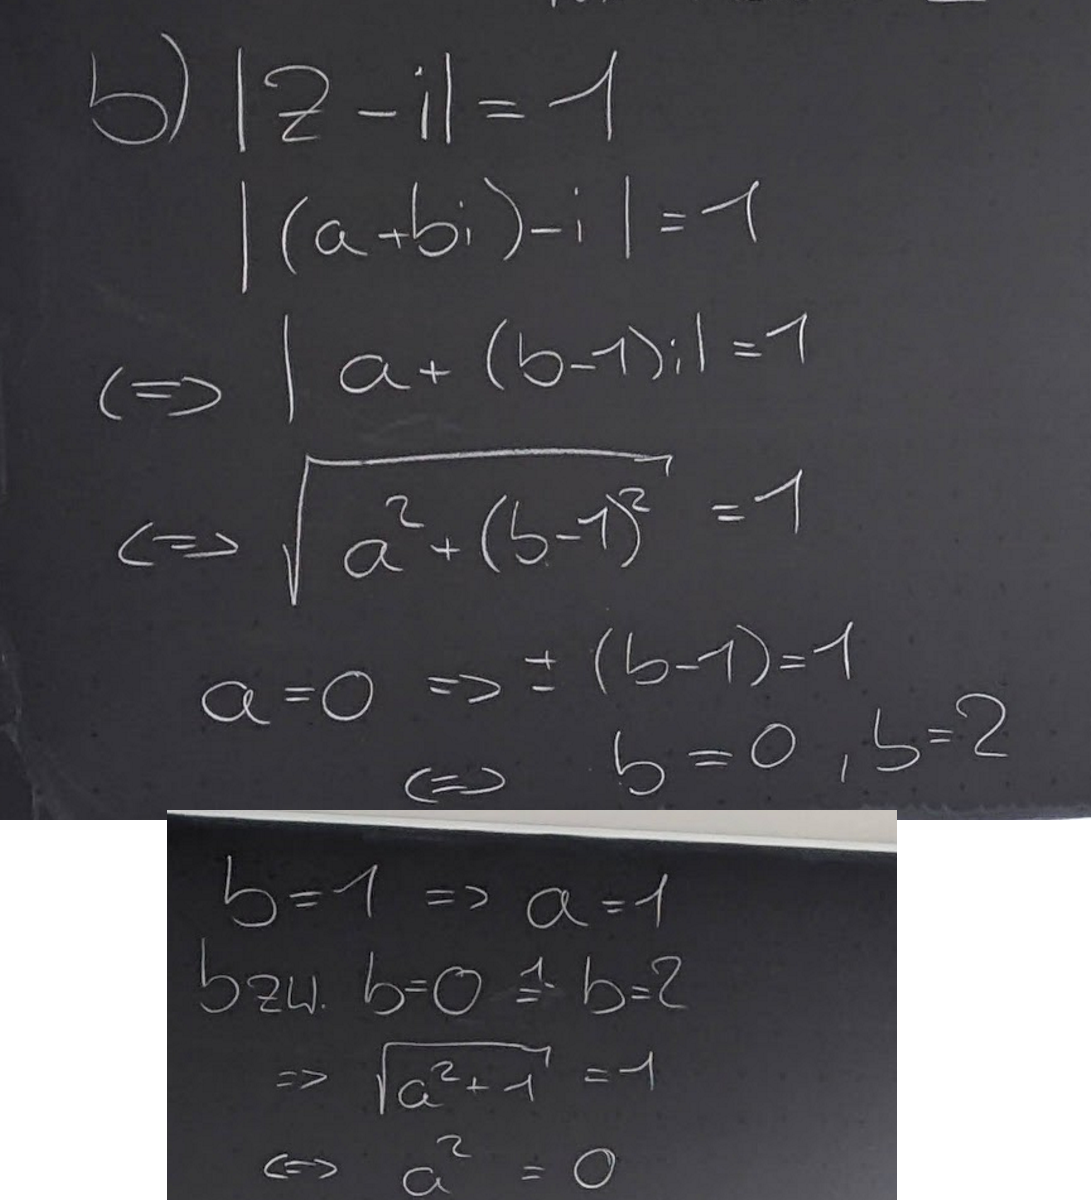 b) |z - i| = 1
|(a+bi) - i| = 1
<=> | a + (b-1)i| = 1
<=> √(a² + (b-1)²) = 1
a = 0 => ± (b-1) = 1
<=> b = 0 , b = 2
b = 1 => a = 1
bzw. b=0 b=2
=> √(a² + 1) = 1
<=> a² = 0